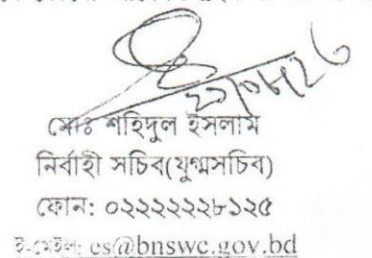 ২১/০৮/২৬
মোঃ শহিদুল ইসলাম
নির্বাহী সচিব(যুগ্মসচিব)
ফোন: ০২২২২২২৮১২৫
ই-মেইল: es@bnswc.gov.bd